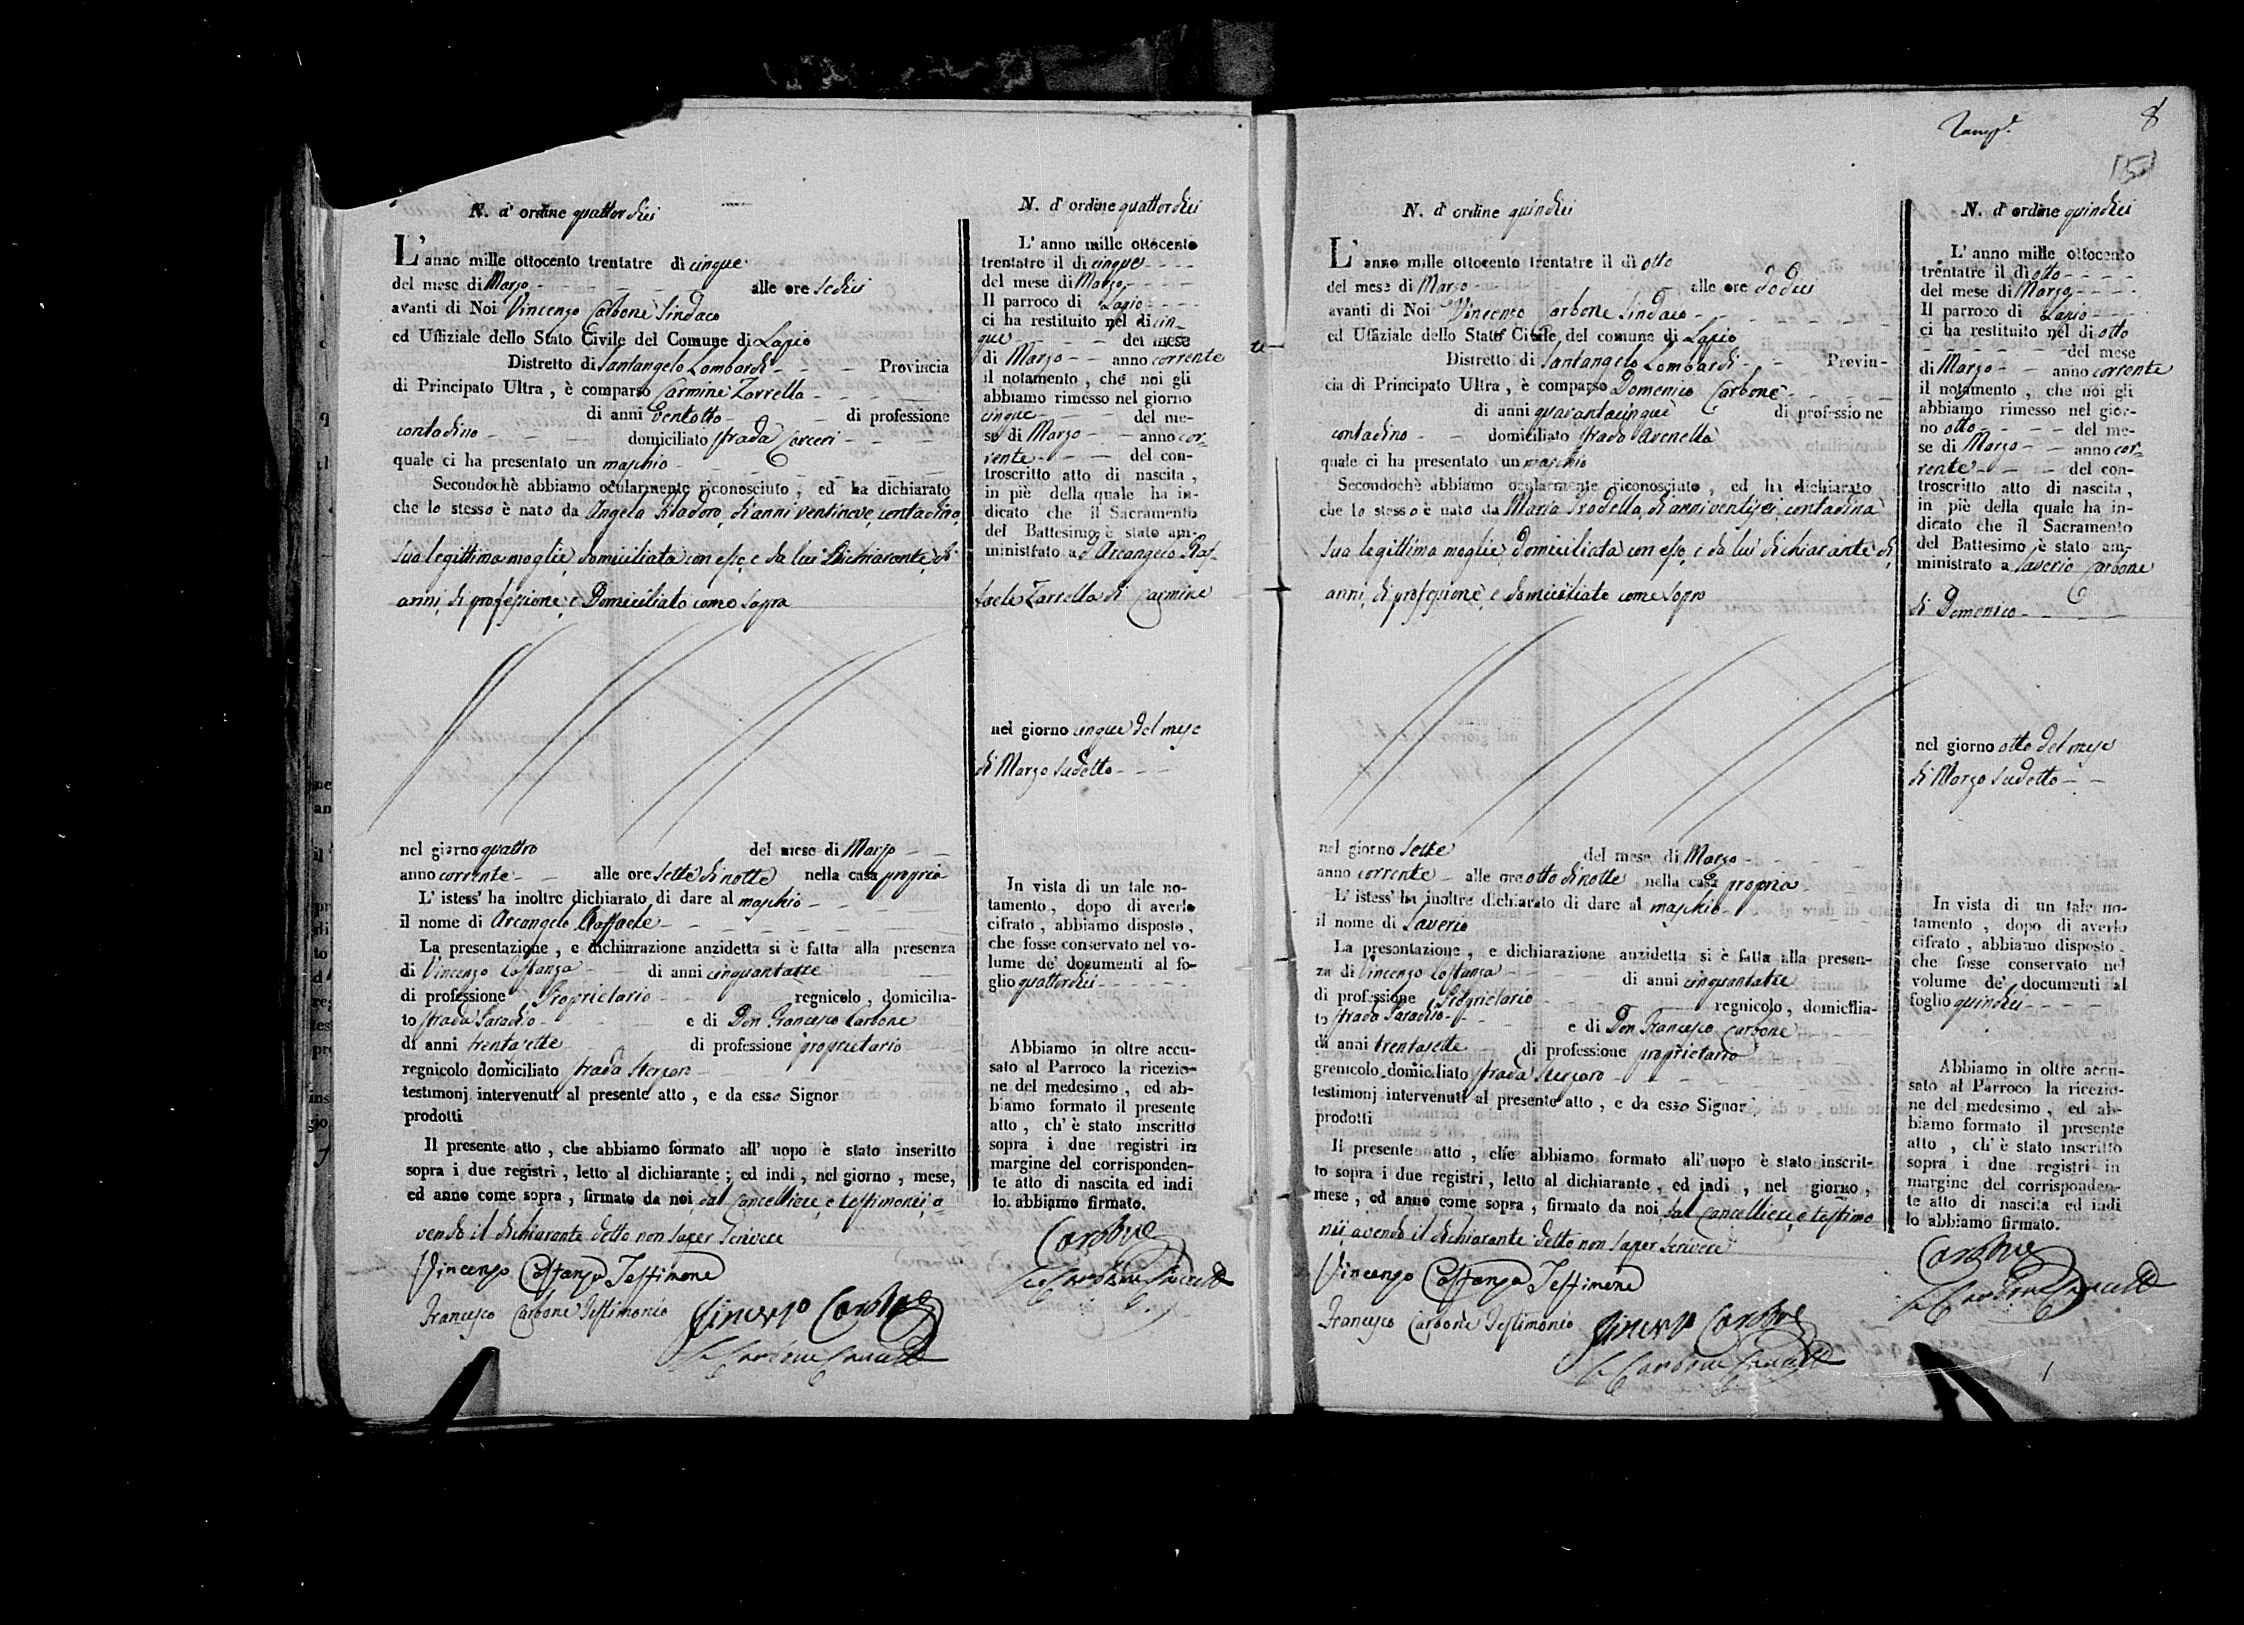 N. d' ordine quattordici
L' anno mille ottocento trentatre di cinque
del mese di Marzo alle ore sedici
avanti di Noi Vincenzo Carbone Sindaco
ed Uffiziale dello Stato Civile del Comune di Lapio
Distretto di Santangelo Lombardi Provincia
di Principato Ultra, è comparso Carmine Zarrella
di anni ventotto di professione
contadino domiciliato strada Carceri
quale ci ha presentato un maschio
Secondochè abbiamo ocularmente riconosciuto, ed ha dichiarato
che lo stesso è nato da Angela di anni ventinove, contadina,
sua legittima moglie domiciliata con esso, e da lui dichiarante, di
anni, di professione, e Domiciliato come sopra
nel giorno quattro del mese di Marzo
anno corrente alle ore sette di notte nella casa propria
L' istess' ha inoltre dichiarato di dare al maschio
il nome di Arcangelo Raffaele
La presentazione, e dichiarazione anzidetta si è fatta alla presenza
di Vincenzo Costanza di anni cinquantatre
di professione Proprietario regnicolo, domicilia-
to strada Paradiso e di Don Francesco Carbone
di anni trentasette di professione proprietario
regnicolo domiciliato strada
testimonj intervenuti al presente atto, e da esso Signor
prodotti
Il presente atto, che abbiamo formato all' uopo è stato inscritto
sopra i due registri, letto al dichiarante; ed indi, nel giorno, mese,
ed anno come sopra, firmato da noi, dal Cancelliere, e testimonii, a-
vendo il dichiarante detto non saper scrivere
Vincenzo Costanza Testimone
Francesco Carbone Testimonio Vincenzo Carbone
N. d' ordine quattordici
L' anno mille ottocento
trentatre il di cinque
del mese di Marzo
Il parroco di Lapio
ci ha restituito nel di cin-
que del mese
di Marzo anno corrente
il notamento, che noi gli
abbiamo rimesso nel giorno
cinque del me-
se di Marzo anno cor-
rente del con-
troscritto atto di nascita,
in piè della quale ha in-
dicato che il Sacramento
del Battesimo è stato am-
ministrato a d Arcangelo Raf-
faele Zarrella di Carmine
nel giorno cinque del mese
di Marzo sudetto
In vista di un tale no-
tamento, dopo di averlo
cifrato, abbiamo disposto,
che fosse conservato nel vo-
lume de' documenti al fo-
glio quattordici
Abbiamo in oltre accu-
sato al Parroco la ricezio-
ne del medesimo, ed ab-
biamo formato il presente
atto, ch' è stato inscritto
sopra i due registri in
margine del corrisponden-
te atto di nascita ed indi
lo abbiamo firmato.
Carbone
8
15
N. d' ordine quindici
L' anno mille ottocento trentatre il di otto
del mese di Marzo alle ore dodici
avanti di Noi Vincenzo Carbone Sindaco
ed Uffiziale dello Stato Civile del comune di Lapio
Distretto di Santangelo Lombardi Provin-
cia di Principato Ultra, è comparso Domenico Carbone
di anni quarantacinque di professione
contadino domiciliato strada Avenella
quale ci ha presentato un maschio
Secondochè abbiamo ocularmente riconosciuto, ed ha dichiarato
che lo stesso è nato da Maria Trodella, di anni ventisei, contadina
sua legittima moglie, Domiciliata con esso, e da lui dichiarante di
anni, di professione, e domiciliato come sopra
nel giorno sette del mese di Marzo
anno corrente alle ore otto di notte nella casa propria
L' istess' ha inoltre dichiarato di dare al maschio
il nome di Saverio
La presentazione, e dichiarazione anzidetta si è fatta alla presen-
za di Vincenzo Costanza di anni cinquantatre
di professione Proprietario regnicolo, domicilia-
to strada Paradiso e di Don Francesco Carbone
di anni trentasette di professione proprietario
grenicolo domiciliato strada
testimonj intervenuti al presente atto, e da esso Signor
prodotti
Il presente atto, che abbiamo formato all' uopo è stato inscrit-
to sopra i due registri, letto al dichiarante, ed indi, nel giorno,
mese, ed anno come sopra, firmato da noi, dal Cancelliere, e testimo-
nii, avendo il dichiarante detto non saper scrivere
Vincenzo Costanza Testimone
Francesco Carbone Testimonio Vincenzo Carbone
N. d' ordine quindici
L' anno mille ottocento
trentatre il di otto
del mese di Marzo
Il parroco di Lapio
ci ha restituito nel di otto
del mese
di Marzo anno corrente
il notamento, che noi gli
abbiamo rimesso nel gior-
no otto del me-
se di Marzo anno cor-
rente del con-
troscritto atto di nascita,
in piè della quale ha in-
dicato che il Sacramento
del Battesimo è stato am-
ministrato a Saverio Carbone
di Domenico
nel giorno otto del mese
di Marzo sudetto
In vista di un tale no-
tamento, dopo di averlo
cifrato, abbiamo disposto,
che fosse conservato nel
volume de' documenti al
foglio quindici
Abbiamo in oltre accu-
sato al Parroco la ricezio-
ne del medesimo, ed ab-
biamo formato il presente
atto, ch' è stato inscritto
sopra i due registri in
margine del corrisponden-
te atto di nascita ed indi
lo abbiamo firmato.
Carbone